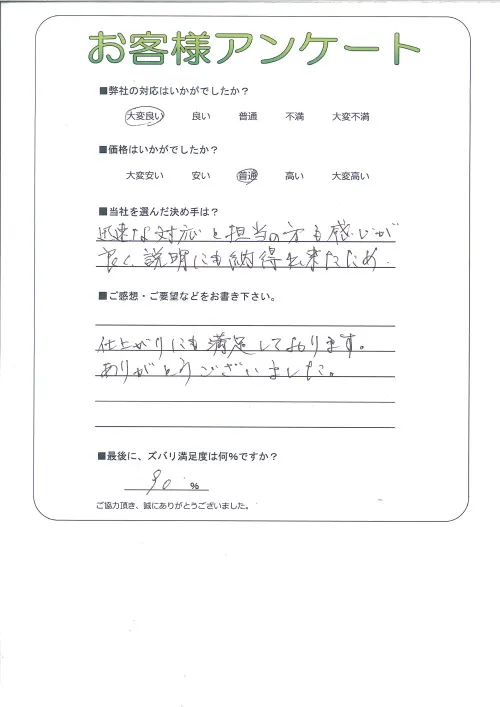 お客様アンケート
■弊社の対応はいかがでしたか？
大変良い 良い 普通 不満 大変不満
■価格はいかがでしたか？
大変安い 安い 普通 高い 大変高い
■当社を選んだ決め手は？
迅速な対応と担当の方も感じが
良く、説明にも納得出来たため。
■ご感想・ご要望などをお書き下さい。
仕上がりにも満足しております。
ありがとうございました。
■最後に、ズバリ満足度は何%ですか？
90 %
ご協力頂き、誠にありがとうございました。